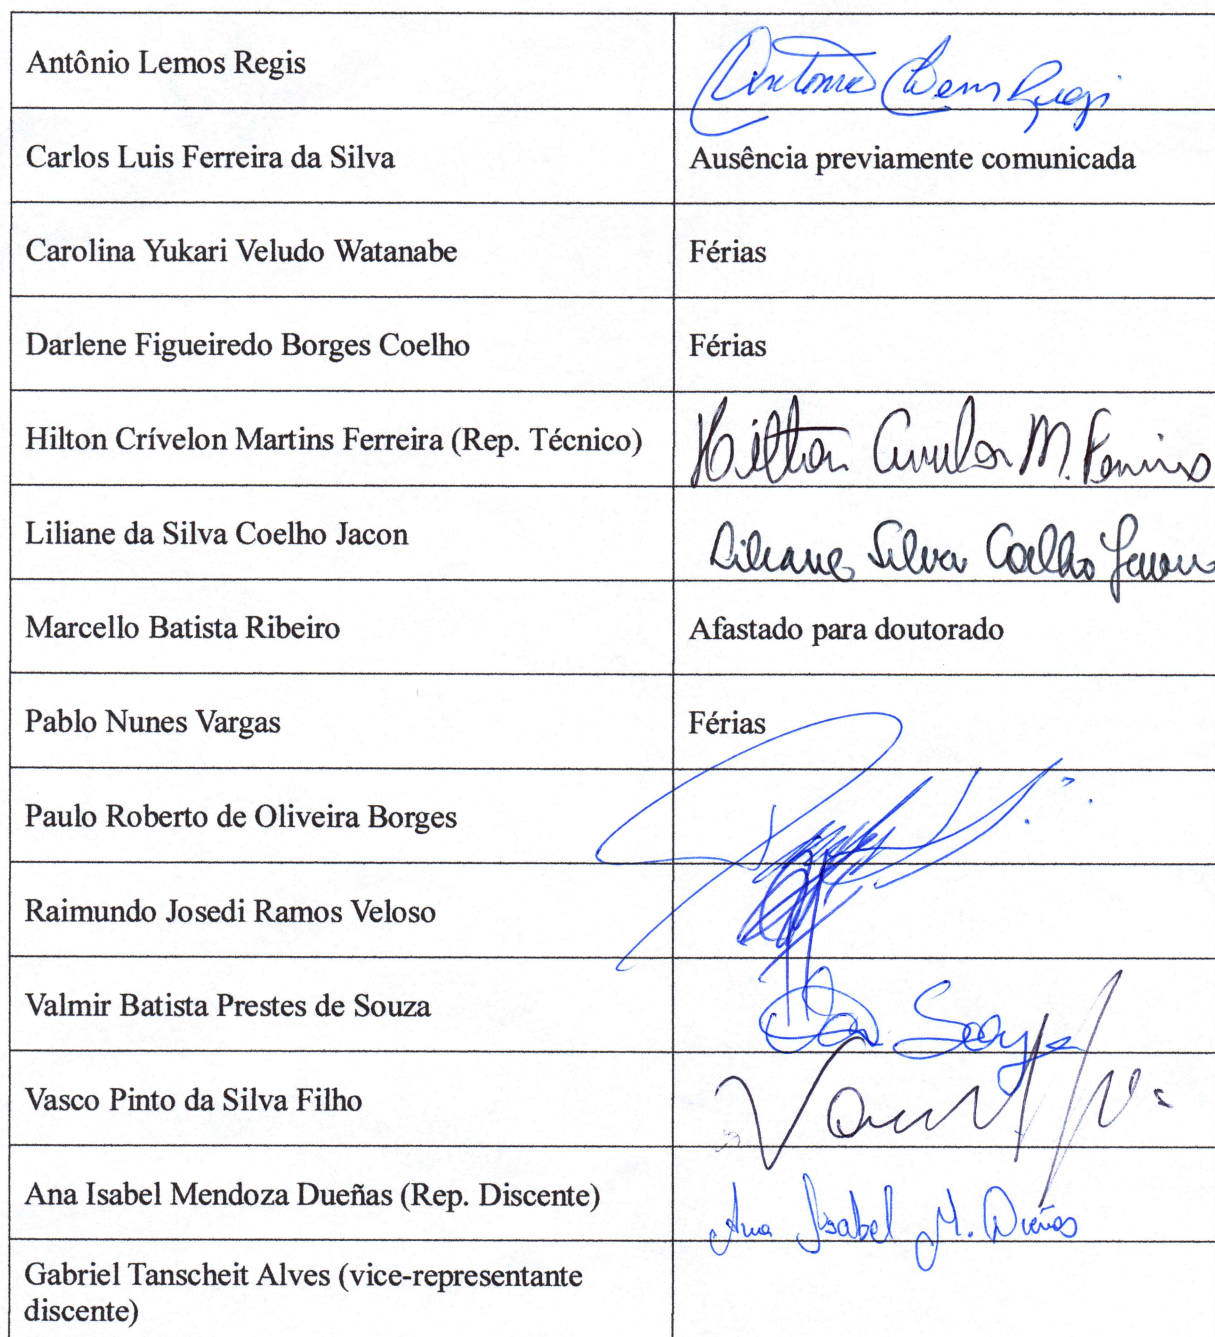 Antônio Lemos Regis
Antonio Lemos Regis
Carlos Luis Ferreira da Silva
Ausência previamente comunicada
Carolina Yukari Veludo Watanabe
Férias
Darlene Figueiredo Borges Coelho
Férias
Hilton Crívelon Martins Ferreira (Rep. Técnico)
Hilton M. Ferreira
Liliane da Silva Coelho Jacon
Liliane Silva Coelho Jacon
Marcello Batista Ribeiro
Afastado para doutorado
Pablo Nunes Vargas
Férias
Paulo Roberto de Oliveira Borges
Raimundo Josedi Ramos Veloso
Valmir Batista Prestes de Souza
Vasco Pinto da Silva Filho
Ana Isabel Mendoza Dueñas (Rep. Discente)
Ana Isabel M. Dueñas
Gabriel Tanscheit Alves (vice-representante
discente)